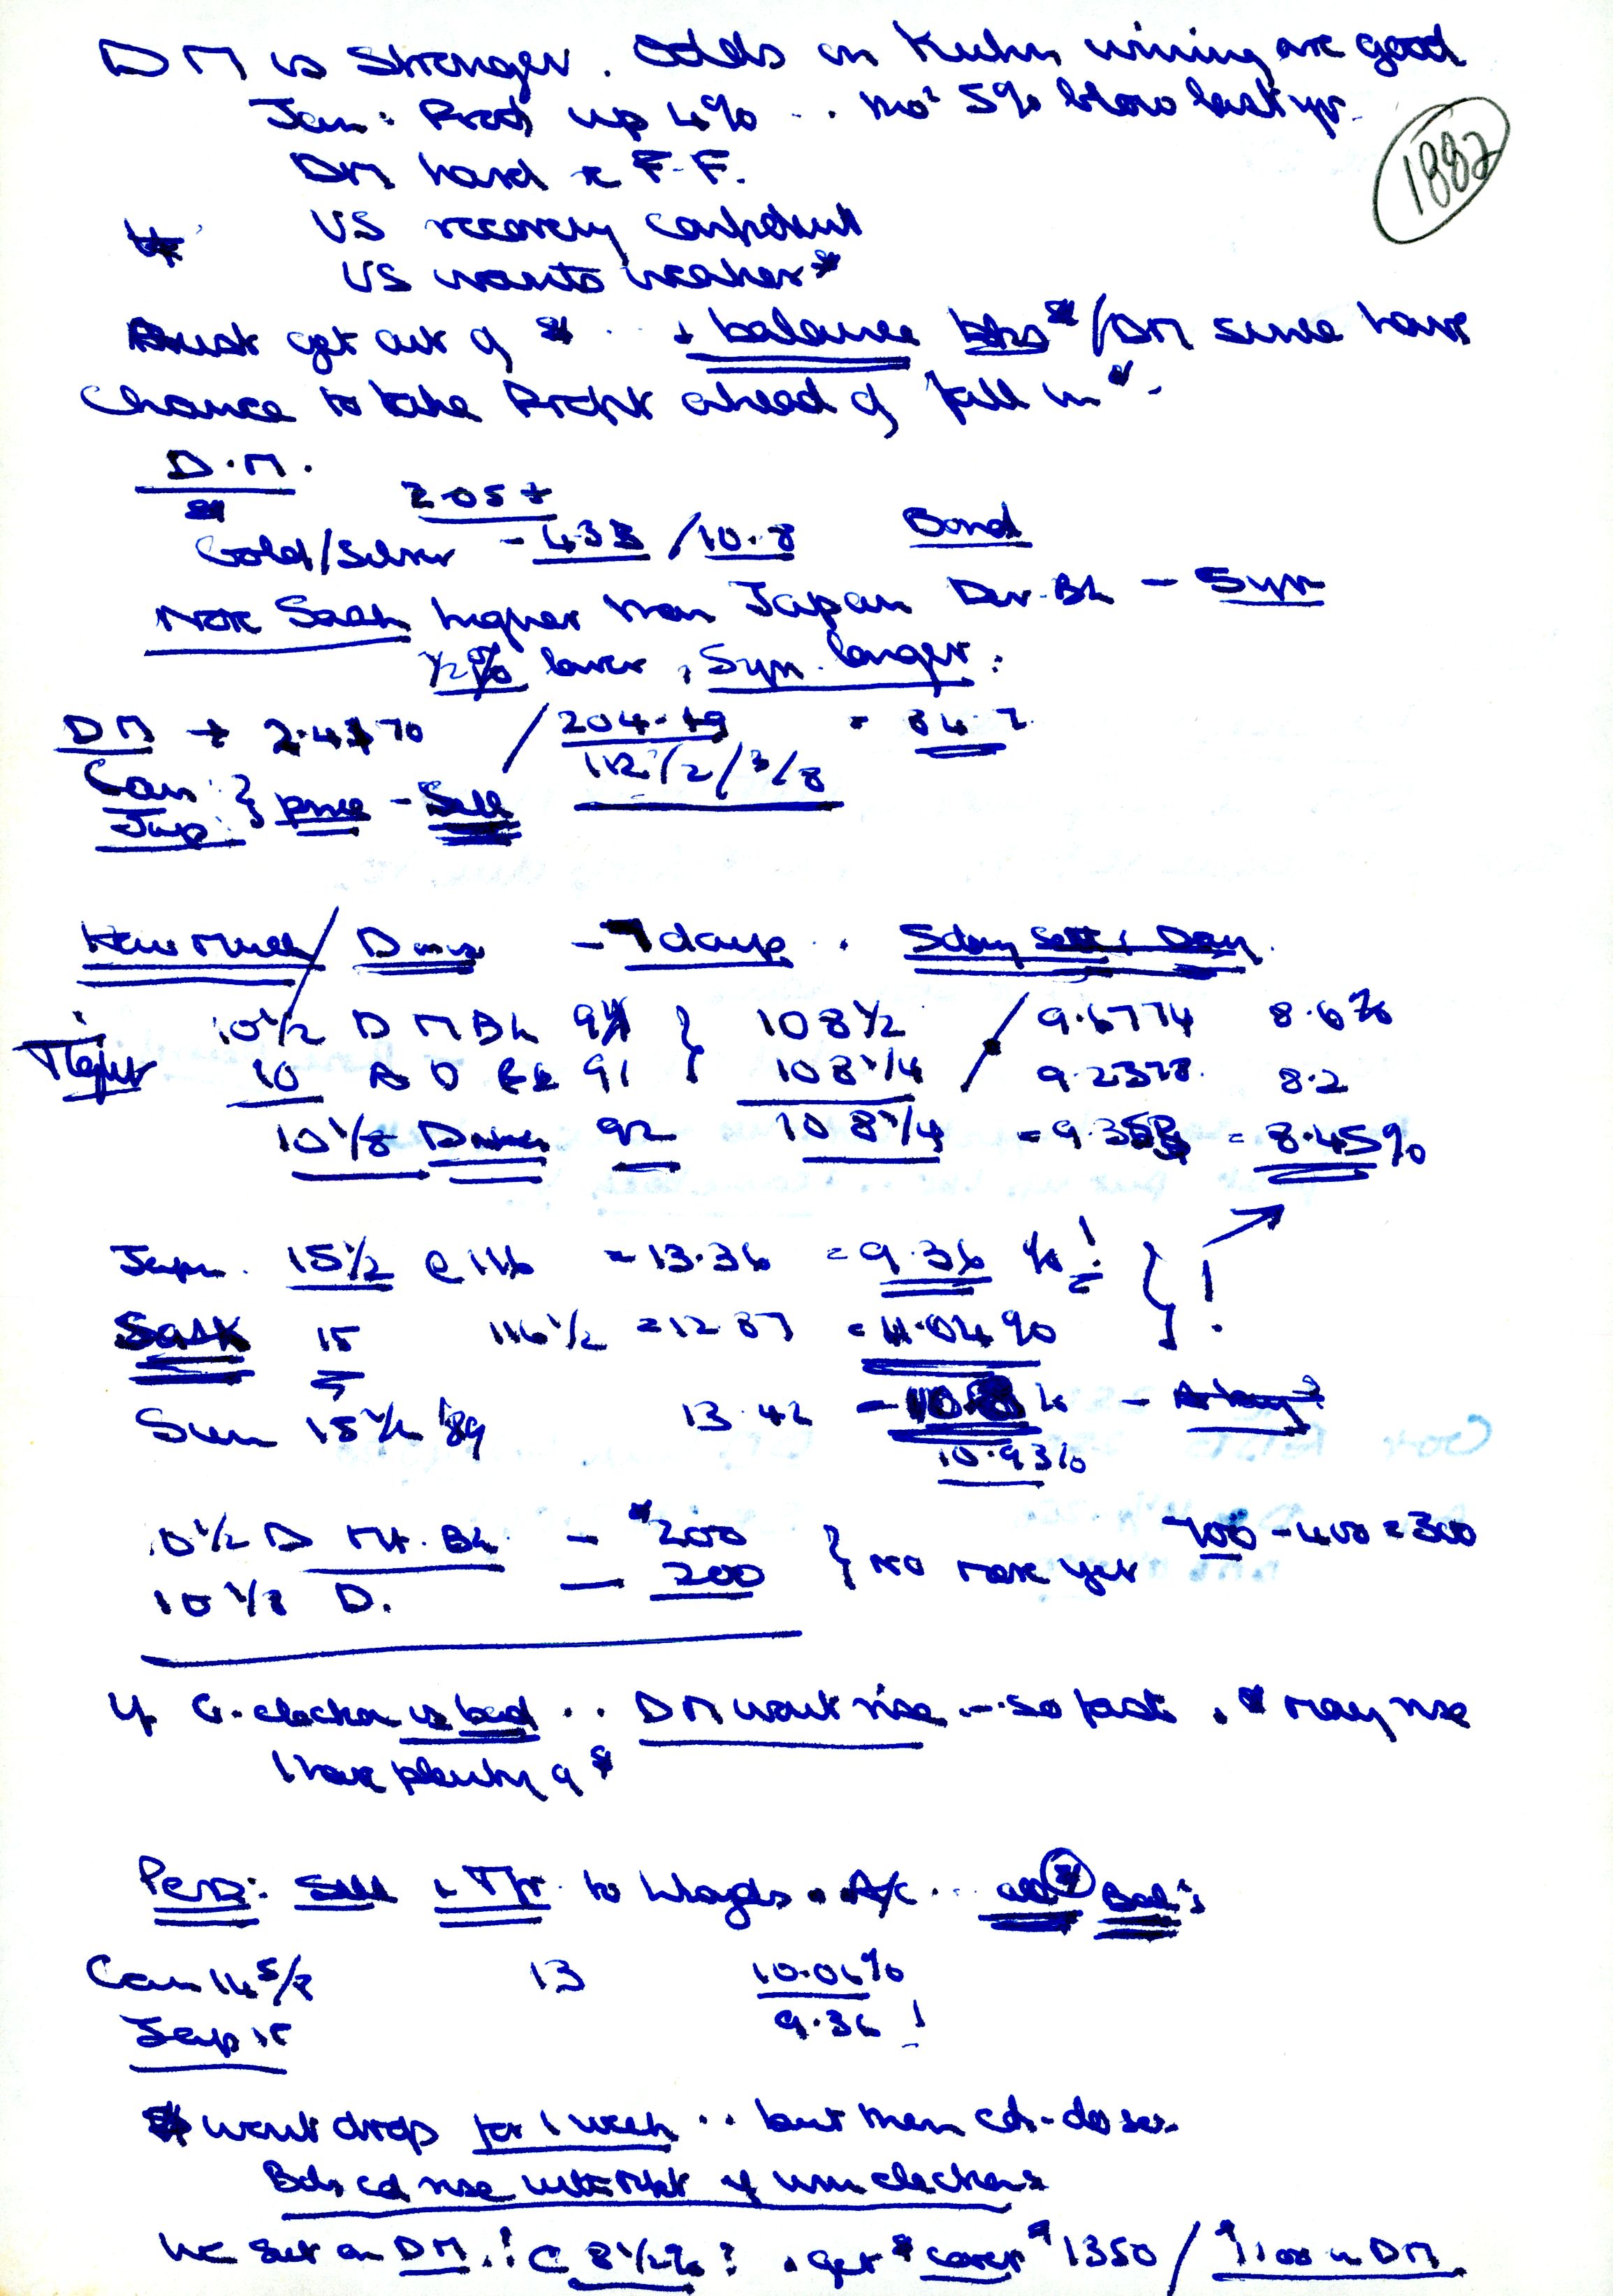 DM is Stronger. Odds on winning are good
Jan: Prod up 4% .. 5% below last yr.
1882
DM hard F-F.
US recovery confident
US wants weaker $
Must get out of $ .. + balance $/DM since have
chance to take Profit ahead of fall in $.
D.M.
$
2.05+
Gold/Silver - 433 /10.8 Bond
Note Sask higher than Japan Dev. Bk - 5yr
1/2% lower, 5yr longer:
DM → 2.4170 / 204.19 = 84.7
112 1/2 / 3/8
Can
Jap } price - Sell
How Much / - 7 days . 5 day Sett: Day.
10 1/2 D M Bk 94 } 108 1/2 / 9.6774 8.6%
10 A D 91 } 108 1/4 / 9.2378 8.2
10 1/8 92 108 1/4 = 9.353 = 8.45%
Jap. 15 1/2 @ 116 = 13.36 = 9.36 % ! } !
Sask 15 116 1/2 = 12.87 = 11.04%
15 1/2 '89 13.42
10.93%
10 1/2 D Mt. Bk - $200 } no more yet 700 - 400 = 300
10 1/8 D. - 200
If G. election is bad .. DM wont rise - so fast, $ may rise
I have plenty of $
Pers: Sell + Tfr to A/C .. all $ Bds
Can 14 5/8 13 10.06%
Jap 15 9.36 !
$ wont drop for 1 week .. but then cd- do so.
Bds cd rise if win elections
We sit on DM.! @ 8 1/2%? . get $ cover $1350 / $1100 in DM